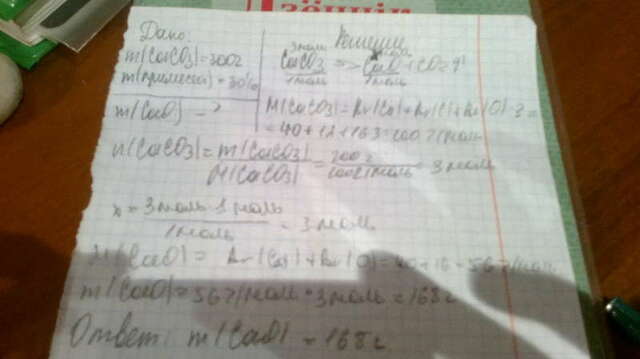 зённік
Дано:
m(CaCO3)=300г
m(примеси)=30%
m(CaO) - ?
Решение
3моль
CaCO3 => CaO + CO2↑
1моль 1моль
M(CaCO3)=Ar(Ca)+Ar(C)+Ar(O)·3=
=40+12+16·3=100г/моль
n(CaCO3)= m(CaCO3) = 300г = 3моль
M(CaCO3) 100г/моль
x = 3моль·1моль = 3моль
1моль
M(CaO)= Ar(Ca)+Ar(O)=40+16=56г/моль
m(CaO)=56г/моль · 3моль=168г
Ответ: m(CaO)=168г